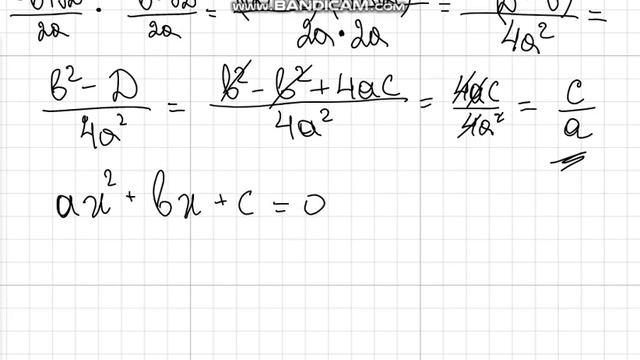 WWW.BANDICAM.COM
2a · 2a = 2a · 2a = 4a² =
b² - D / 4a² = b² - b² + 4ac / 4a² = 4ac / 4a² = c / a
ax² + bx + c = 0